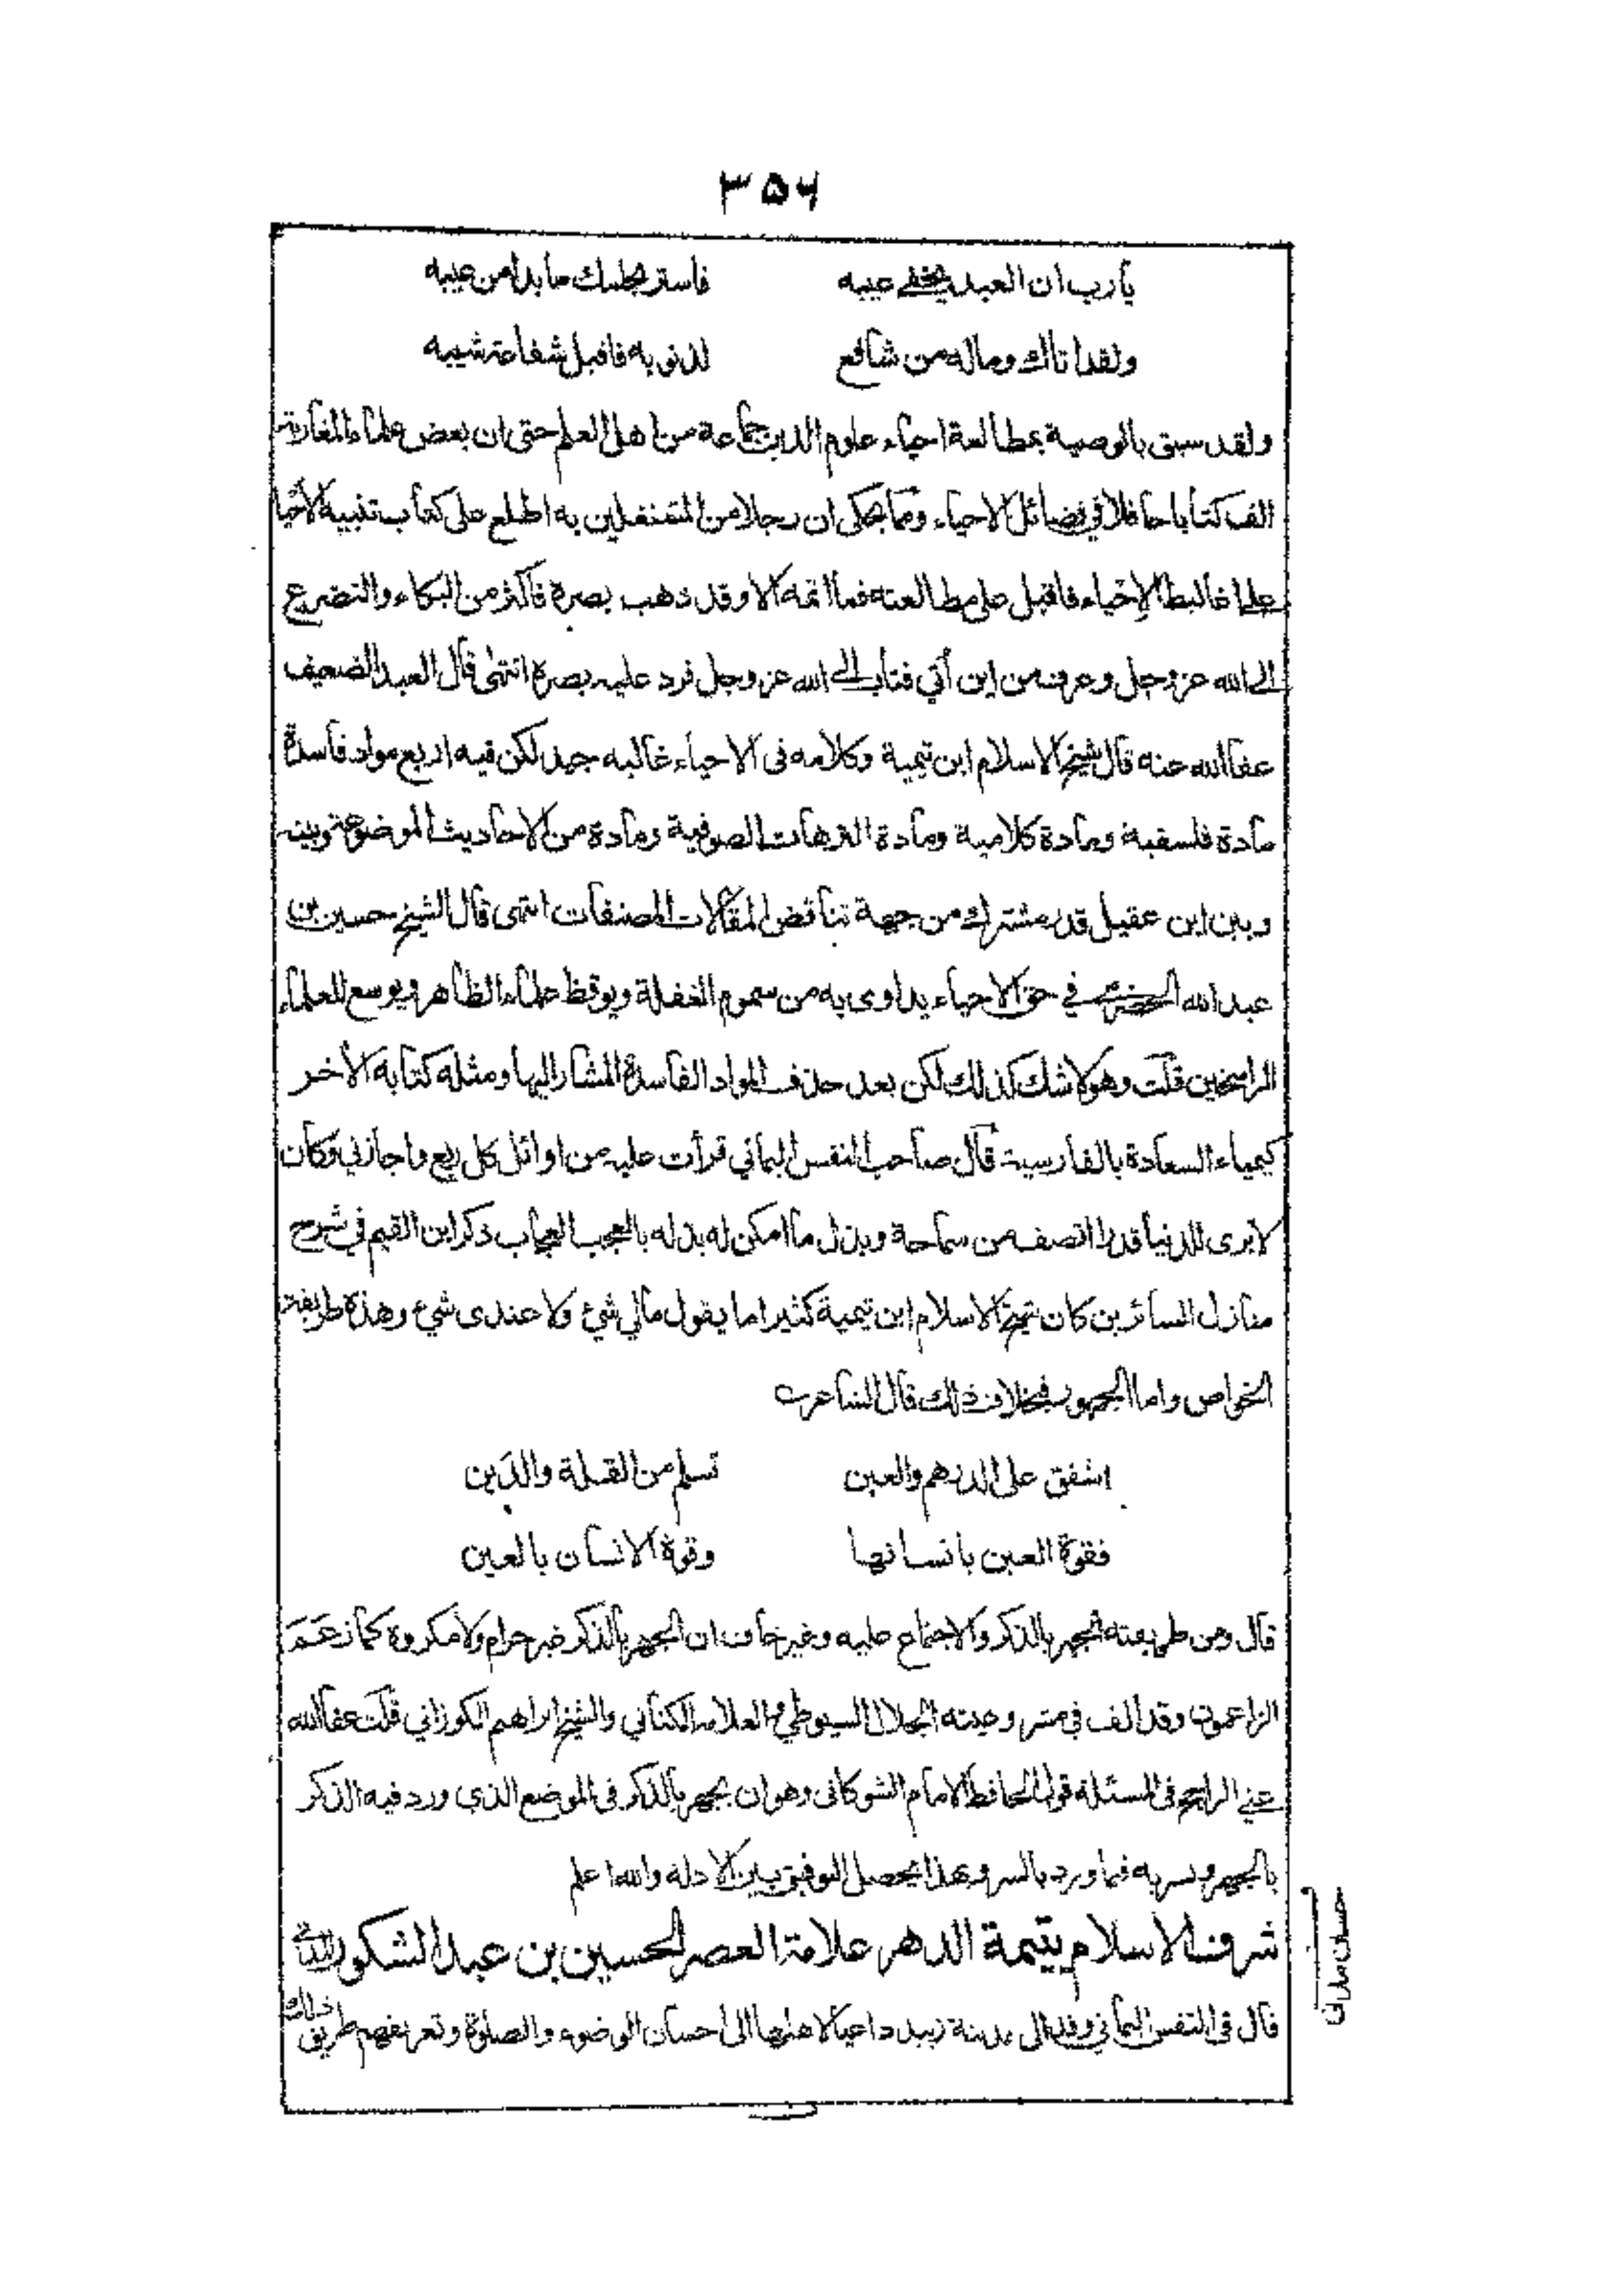 ٣٥٦
يارب ان العبد يخفي عيبه فاستر بحلمك ما بدا من عيبه
ولقد اتاك وماله من شافع لذنوبه فاقبل شفاعة شيبه
ولقد سبق بالوصية بمطالعة احياء علوم الدين جماعة من اهل العلم حتى ان بعض علماء المغاربة
الف كتابا حافلا في فضائل الاحياء ومما يحكى ان رجلا من به اطلع على كتاب تنبيه الاحيا
على اغاليط الإحياء فاقبل على مطالعته فما اتمه الا وقد ذهب بصره فاكثر من البكاء والتضرع
الى الله عز وجل وعرف من اين أتي فتاب الى الله عز وجل فرد عليه بصره انتهى قال العبد الضعيف
عفا الله عنه قال شيخ الاسلام ابن تيمية وكلامه فى الاحياء غالبه جيد لكن فيه اربع مواد فاسدة
مادة فلسفية ومادة كلامية ومادة الترهات الصوفية ومادة من الاحاديث الموضوعة وبينه
وبين ابن عقيل قدر مشترك من جهة تناقض المقالات المصنفات انتهى قال الشيخ حسين بن
عبد الله الحضرمي في حق الاحياء يداوى به من سموم الغفلة ويوقظ علماء الظاهر ويوسع للعلماء
الراسخين قلت وهو لا شك كذلك لكن بعد حذف المواد الفاسدة المشار اليها ومثله كتابه الأخر
كيمياء السعادة بالفارسية قال صاحب النفس اليماني قرأت عليه من اوائل كل ربع واجازني وكان
لا يرى للدنيا قدرا اتصف من سماحة وبذل ما امكن له بذله بالعجب العجاب ذكر ابن القيم في شرح
منازل السائرين كان شيخ الاسلام ابن تيمية كثيرا ما يقول مالي شئ ولا عندى شيء وهذه طريقة
الخواص واما الجمهور فبخلاف ذلك قال الشاعر
اشفق على الدرهم والعين تسلم من القلة والدَين
فقوة العين بانسانها وقوة الانسان بالعين
قال ومن طريقته الجهر بالذكر والاجتماع عليه وغير خاف ان الجهر بالذكر غير حرام ولا مكروه كما زعم
الزاعمون وقد الف في مشروعيته الجلال السيوطي والعلامة الكتاني والشيخ ابراهيم الكوراني قلت عفا الله
عني الراجح فى المسئلة قول الحافظ الامام الشوكانى وهو ان يجهر بالذكر فى الموضع الذي ورد فيه الذكر
بالجهر ويسر به فيما ورد بالسر وبهذا يحصل التوفيق بين الادلة والله اعلم
شرف الاسلام يتيمة الدهر علامة العصر الحسين بن عبد الشكور
قال فى النفس اليماني وفد الى مدينة زبيد داعيا لاهلها الى احسان الوضوء والصلوة وتعريفهم طريق ذلك